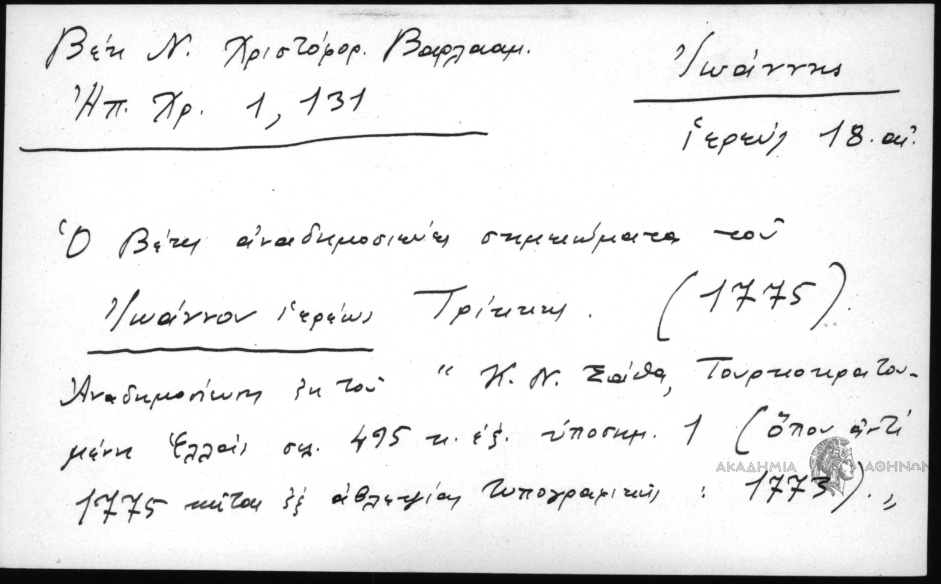 Βέη Ν. Χριστόφορ. Βαρλααμ.
Ἠπ. Χρ. 1, 131
Ἰωάννης
ἱερεύς 18. αἰ.
Ὁ Βέης ἀναδημοσιεύει σημειώματα τοῦ
Ἰωάννου ἱερέως Τρίκκης. (1775).
Ἀναδημοσίευσις ἐκ τοῦ "Κ. Ν. Σάθα, Τουρκοκρατου-
μένη Ἑλλάς σελ. 495 κ. ἑξ. ὑποσημ. 1 (ὅπου ἀντί
1775 κεῖται ἐξ ἀβλεψίας τυπογραφικῆς : 1773)."
ΑΚΑΔΗΜΙΑ ΑΘΗΝΩΝ